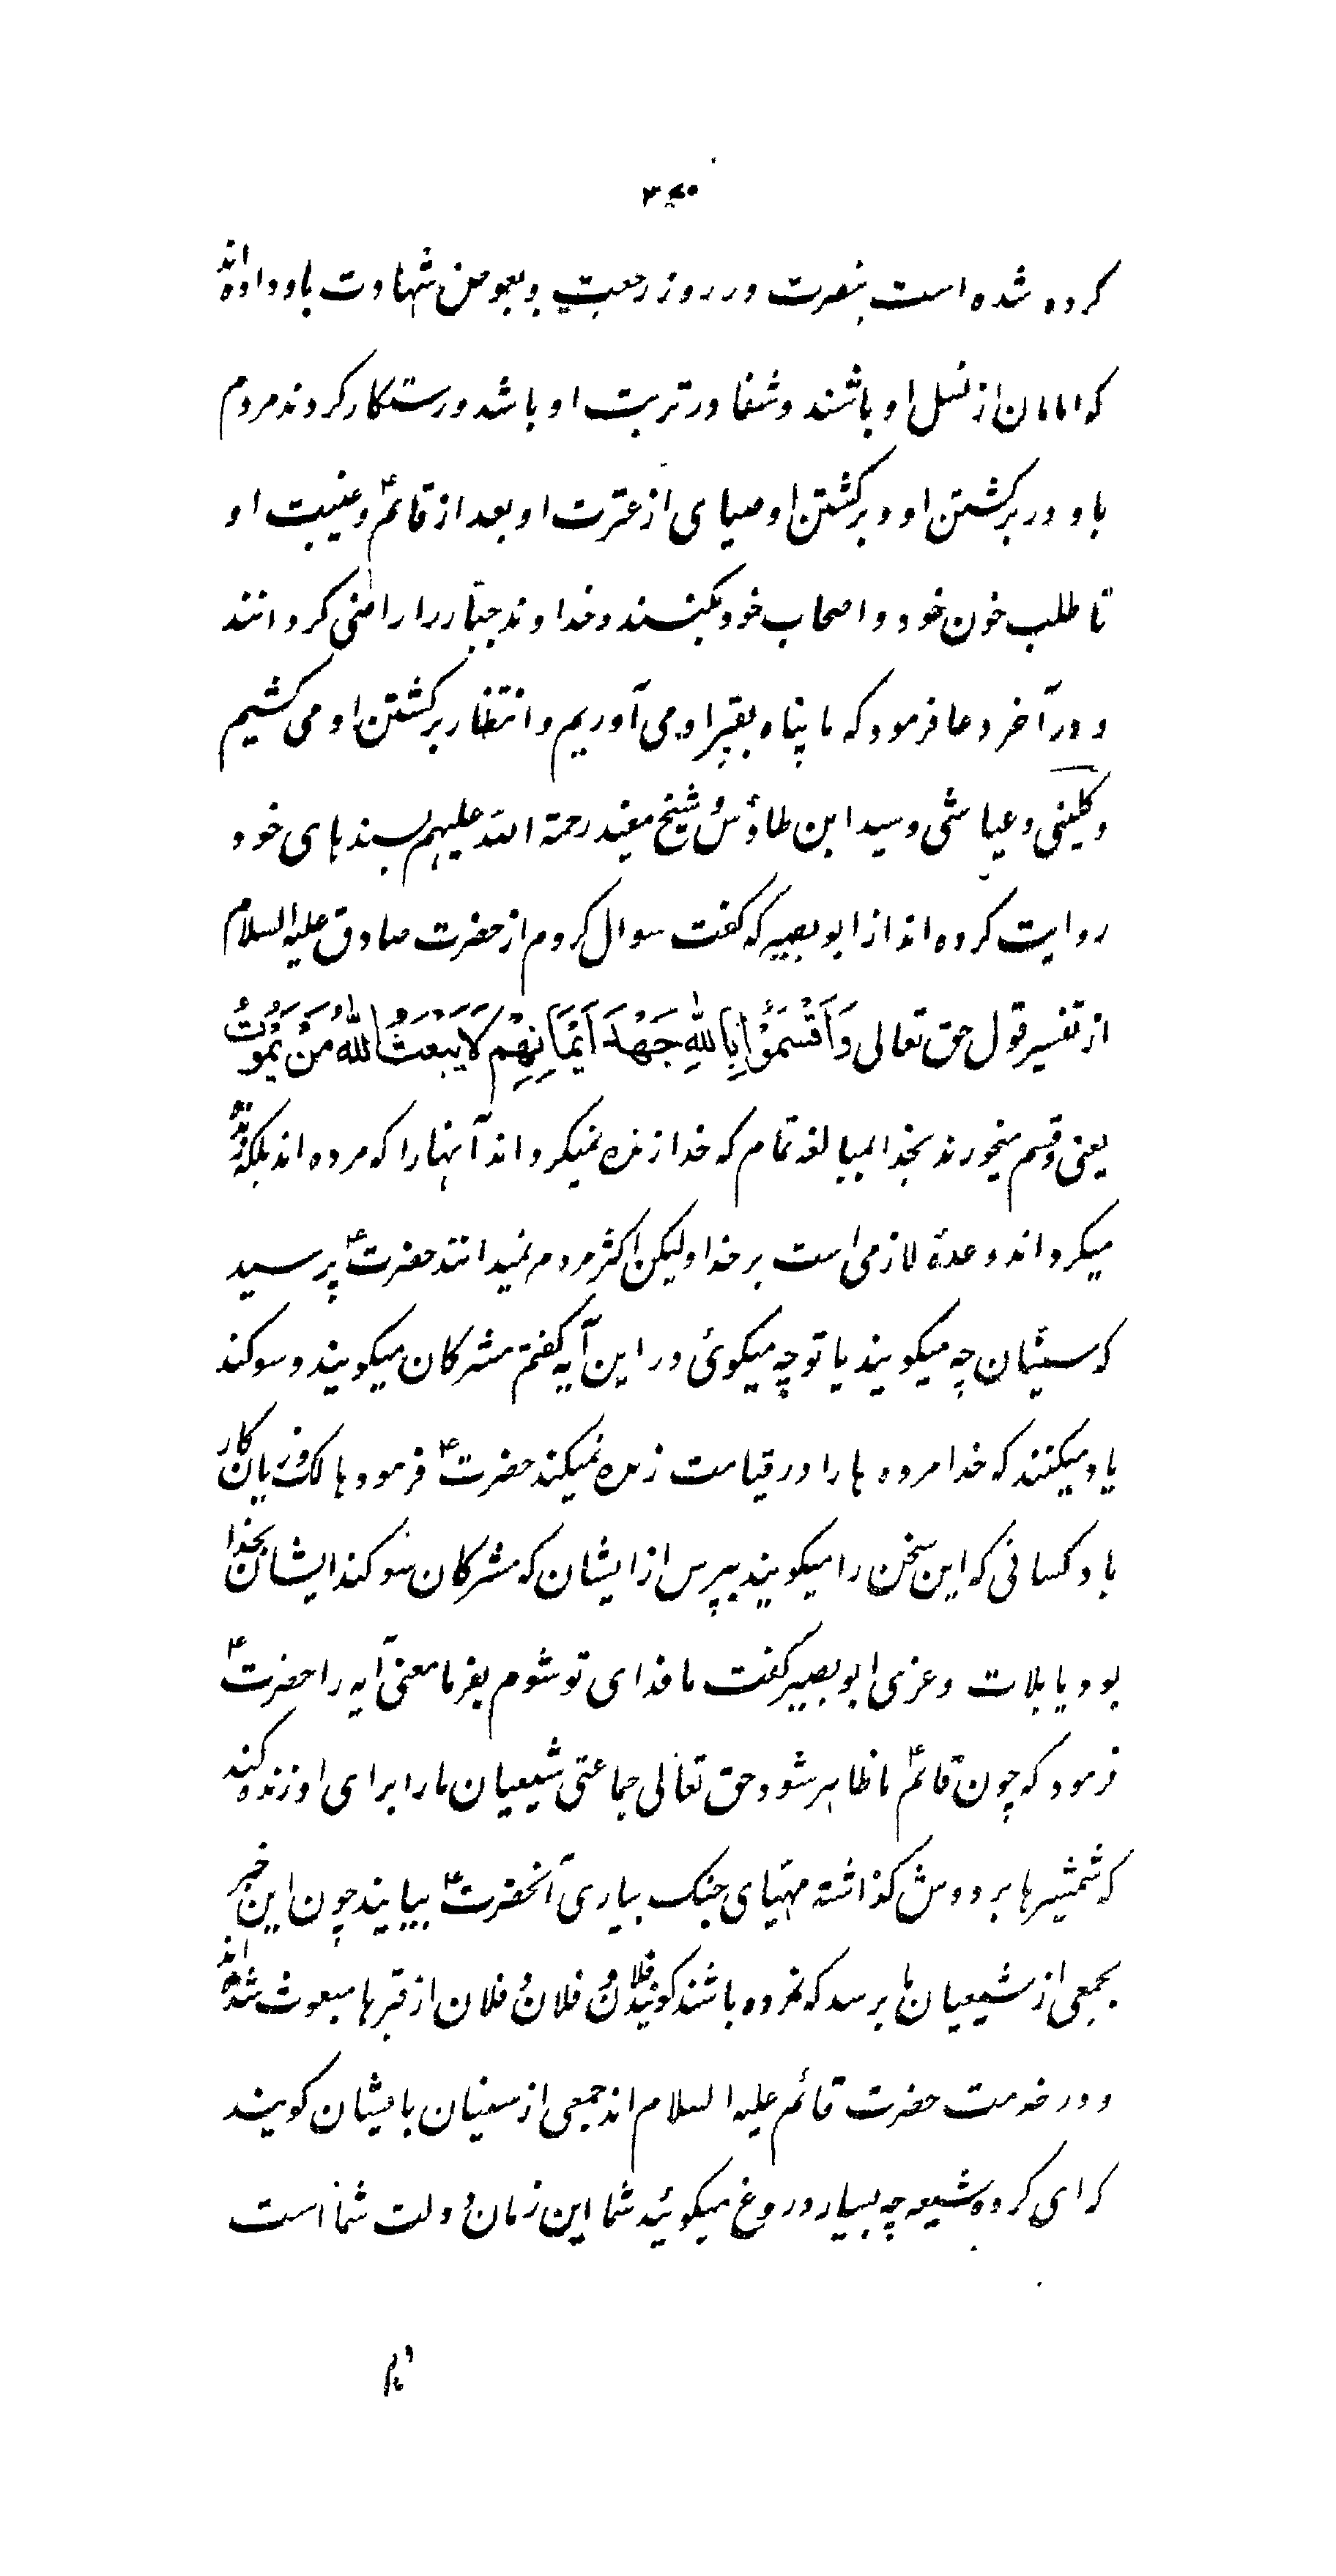 ۳۶۰
کرده شده است بنصرت در روز رجعت و بعوض شهادت باو داده اند
که امامان از نسل او باشند و شفا در تربت او باشد و رستکار کردند مردم
باو در برکشتن او و برکشتن اوصیای از عترت او بعد از قائم ع و غیبت او
تا طلب خون خود و اصحاب خود بکنند و خداوند جبّار را راضی کردانند
و در آخر دعا فرمود که ما پناه بقبر او می آوریم و انتظار برکشتن او می کشیم
و کلینی و عیاشی و سید ابن طاؤس و شیخ مفید رحمة الله علیهم بسند های خود
روایت کرده اند از ابو بصیر که کفت سوال کردم از حضرت صادق علیه السلام
از تفسیر قول حق تعالی وَاَقْسَمُوْا بِاللهِ جَهْدَ اَیْمَانِهِمْ لَایَبْعَثُ اللهُ مَنْ یَمُوْتُ
یعنی و قسم میخورند بخدا بمبالغه تمام که خدا زنده نمیکرداند آنها را که مرده اند بلکه زنده
میکرداند و عدهٔ لازمی است بر خدا ولیکن اکثر مردم نمیدانند حضرت ع پرسید
که سنیّان چه میکویند یا تو چه میکوئی در این آیه کفتم مشرکان میکویند و سوکند
یاد میکنند که خدا مرده ها را در قیامت زنده نمیکند حضرت ع فرمود هالک و زیان کار
باد کسانی که این سخن را میکویند بپرس از ایشان که مشرکان سوکند ایشان بخدا
بود یا بلات و عزی ابو بصیر کفت ما فدای تو شوم بفرما معنی آیه را حضرت ع
فرمود که چون قائم ع ما ظاهر شود حق تعالی جماعتی شیعیان ما را برای او زنده کند
که شمشیرها بر دوش کذاشته مهیّای جنک بیاری آنحضرت ع بیایند چون این خبر
بجمعی از شیعیان ما برسد که نمرده باشند کویند فلان و فلان و فلان از قبرها مبعوث شده اند
و در خدمت حضرت قائم علیه السلام اند جمعی از سنیان بایشان کویند
که ای کروه شیعه چه بسیار دروغ میکوئید شما این زمان دولت شما است